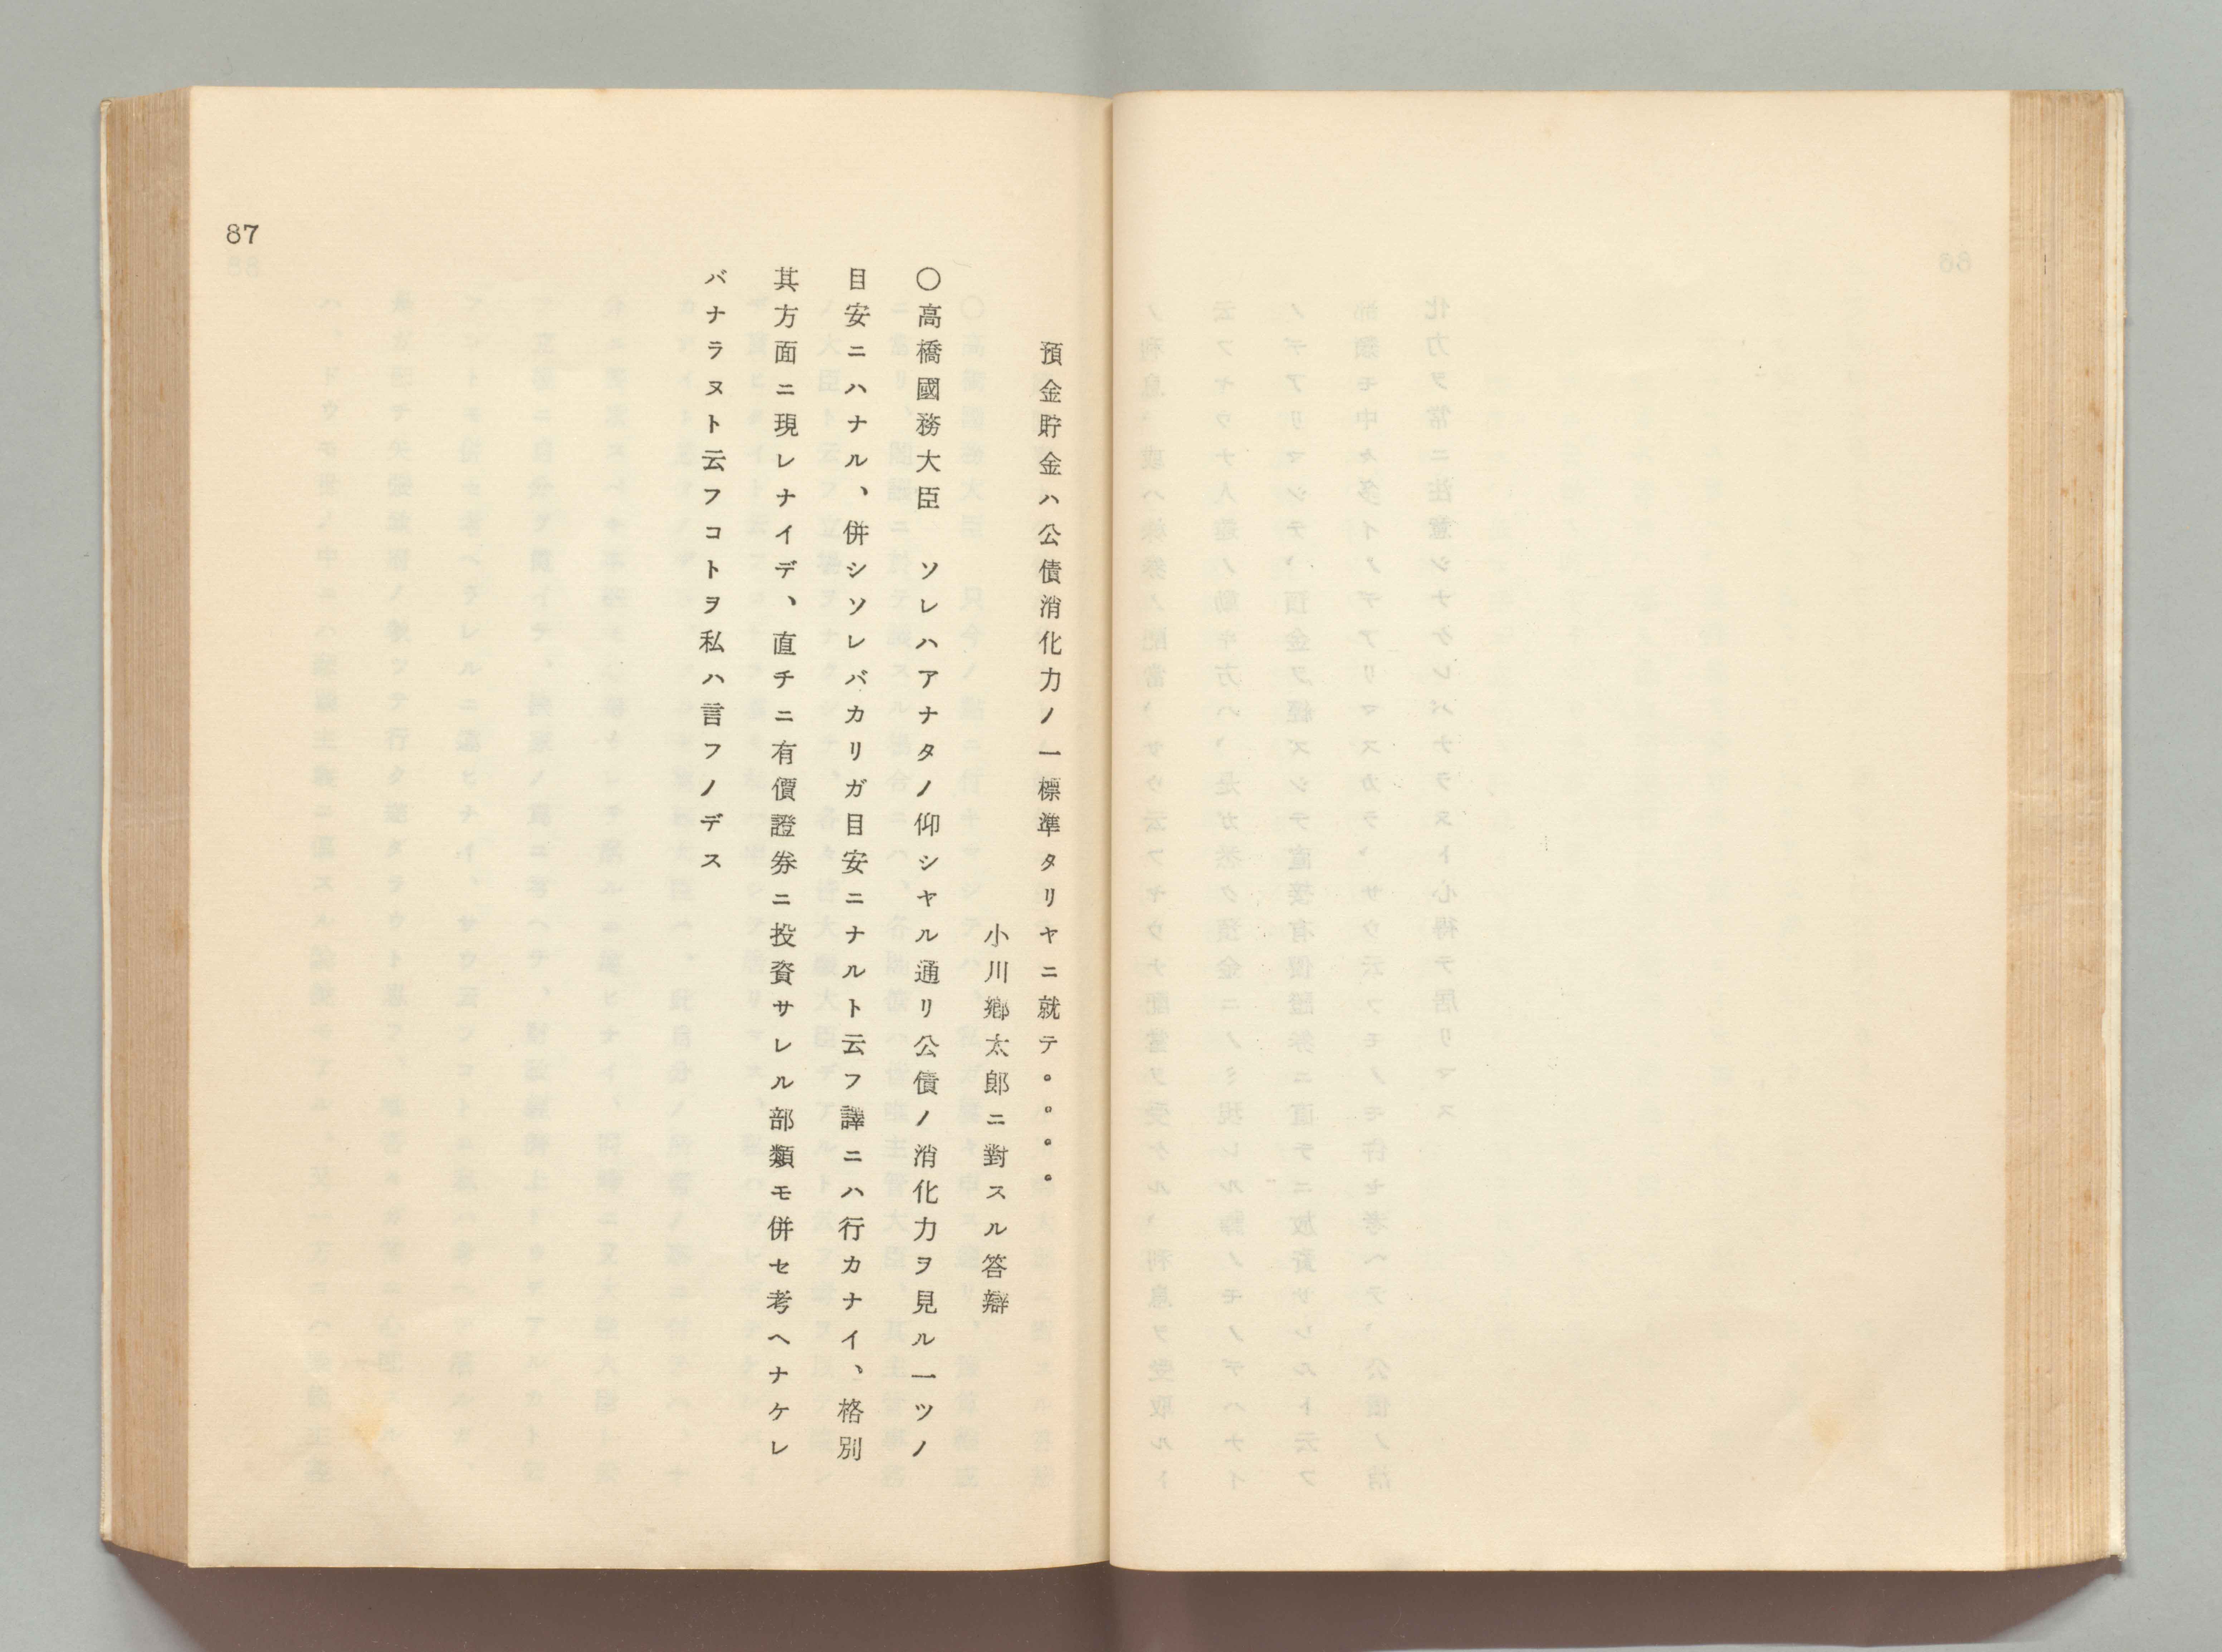 預金貯金ハ公債消化力ノ一標準タリヤニ就テ。。。。
小川鄕太郎ニ對スル答辯
〇高橋國務大臣　ソレハアナタノ仰シヤル通リ公債ノ消化力ヲ見ル一ツノ
目安ニハナル、併シソレバカリガ目安ニナルト云フ譯ニハ行カナイ、格別
其方面ニ現レナイデ、直チニ有價證券ニ投資サレル部類モ併セ考ヘナケレ
バナラヌト云フコトヲ私ハ言フノデス
87